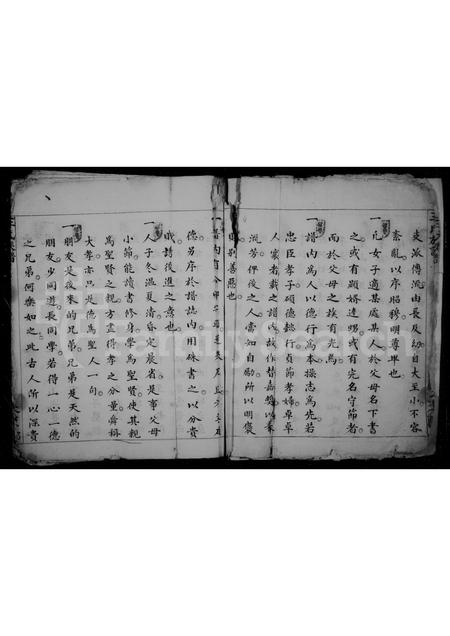 支派傳流由長及幼自大至小不容
紊亂以序昭穆明尊卑也
一凡女子適某處某人於父母名下書
之或有顯婿達甥或有先名守節者
而於父母之族有光焉
一譜內為人以德行為本操志為先若
忠臣孝子碩德懿行貞節孝婦卓卓
人寰者載之譜內故作替嘉獎以豪
流芳俾後之人當知自勵所以明褒
別善惡也
一譜內有
德另序於譜誌內用硃書之以分貴
賤請後進之意也
一人子冬溫夏清昏定晨省是事父母
小節能讀書修身學為聖賢使其親
為聖賢之親方盡得孝之分量舜稱
大孝亦只是德為聖人一句
一朋友是後來的兄弟兄弟是天然的
朋友少同遊長同學若得一心一德
之兄弟何樂如之此古人所以深貴